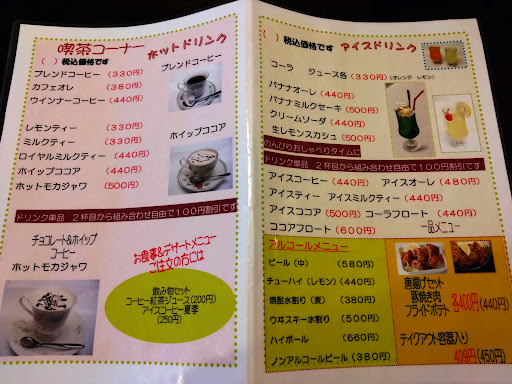 喫茶コーナー ホットドリンク
( ) 税込価格です
ブレンドコーヒー (330円)
カフェオレ (380円)
ウインナーコーヒー (440円)
ブレンドコーヒー
レモンティー (330円)
ミルクティー (330円)
ロイヤルミルクティー (440円)
ホイップココア (440円)
ホットモカジャワ (500円)
ホイップココア
ドリンク単品 2杯目から組み合わせ自由で100円割引です
チョコレート&ホイップ
コーヒー
ホットモカジャワ
お食事&デザートメニュー
ご注文の方には
飲み物セット
コーヒー紅茶ジュース(200円)
アイスコーヒー夏季
(250円)
( ) 税込価格です アイスドリンク
コーラ ジュース各 (330円) (オレンジ レモン)
バナナオーレ (440円)
バナナミルクセーキ (500円)
クリームソーダ (440円)
生レモンスカッシュ (500円)
のんびりおしゃべりタイムに
ドリンク単品 2杯目から組み合わせ自由で100円割引です
アイスコーヒー (440円) アイスオーレ (480円)
アイスティー アイスミルクティー (440円)
アイスココア (500円) コーラフロート (440円)
ココアフロート (600円)
一品メニュー
アルコールメニュー
ビール (中) (580円)
チューハイ (レモン) (440円)
焼酎水割り (麦) (380円)
ウヰスキー水割り (500円)
ハイボール (660円)
ノンアルコールビール (380円)
唐揚げセット
豚焼き肉
フライドポテト
各400円 (440円)
テイクアウト容器入り
409円 (450円)